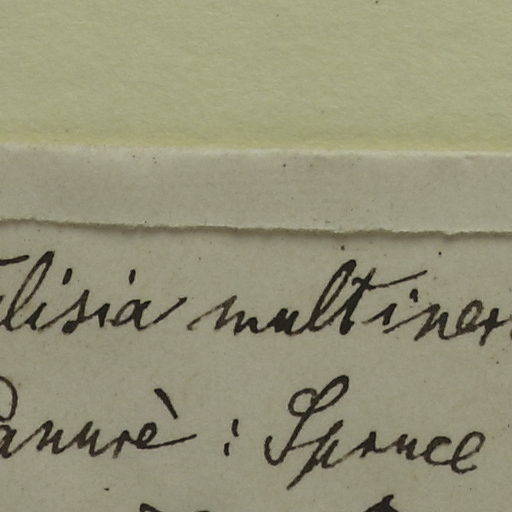 lisia multiner
Panurè : Spruce